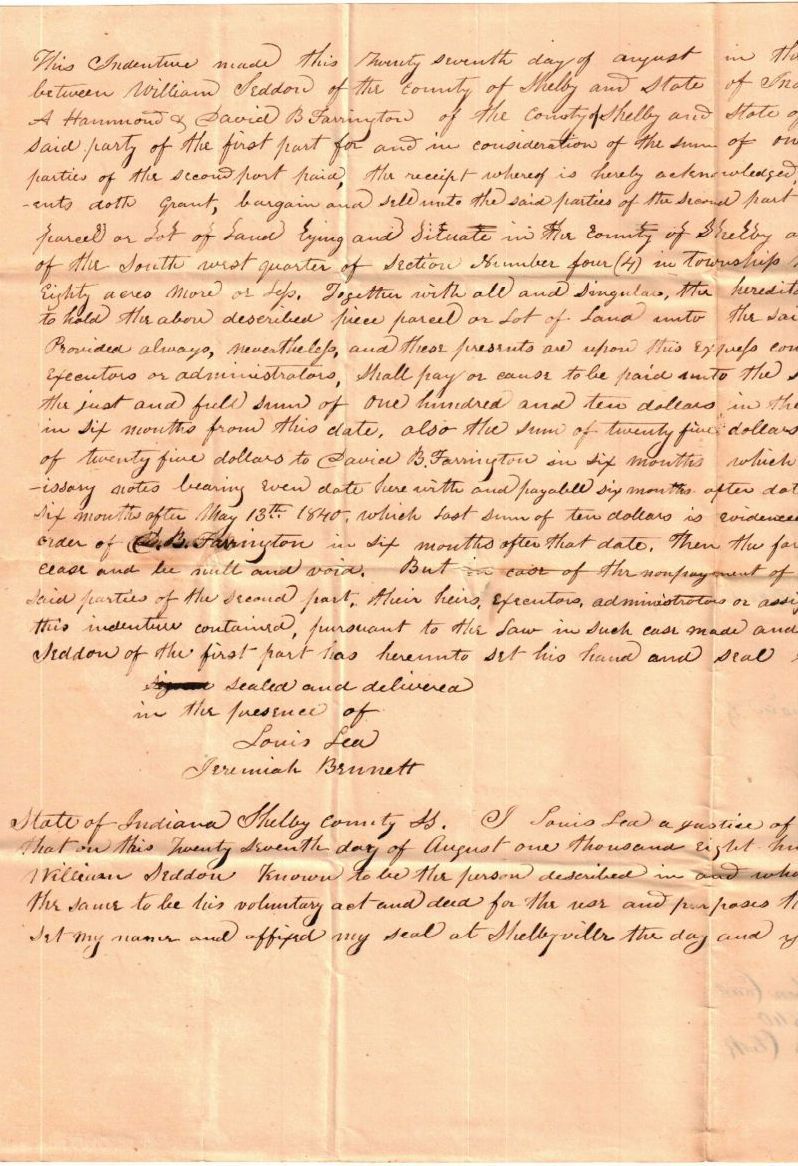 This Indenture made this Twenty seventh day of august in th
between William Seddon of the county of Shelby and State of Ind
A Hammond & David B Farrington of the County of Shelby and State of
said party of the first part for and in consideration of the sum of on
parties of the second part paid, the receipt whereof is hereby acknowledged,
-ents doth grant, bargain and sell unto the said parties of the second part
parcel or Lot of Land lying and Situate in the County of Shelby a
of the South west quarter of Section Number four (4) in township
Eighty acres more or less. Together with all and Singular, the heredita
to hold the above described piece parcel or Lot of Land unto the sai
Provided always, nevertheless, and these presents are upon this Express con
Executors or administrators, Shall pay or cause to be paid unto the s
the just and full sum of one hundred and ten dollars in the
in six months from this date, also the sum of twenty five dollars
of twenty five dollars to David B. Farrington in six months which
-issory notes bearing Even date herewith and payable six months after dat
six month after May 13th 1840, which last sum of ten dollars is evidence
order of D. B. Farrington in six months after that date. Then the
cease and be null and void. But in case of the nonpayment of
said parties of the second part, their heirs, Executors, administrators or assi
this indenture contained, pursuant to the Law in such case made and
Seddon of the first part has hereunto set his hand and seal
sealed and delivered
in the presence of
Louis Lea
Jeremiah Bennett
State of Indiana Shelby County Ss. I Louis Lea a justice of
that on this Twenty Seventh day of August one thousand Eight hu
William Seddon Known to be the person described in and who
the same to be his voluntary act and deed for the use and purposes th
set my name and affixed my seal at Shelbyville the day and y